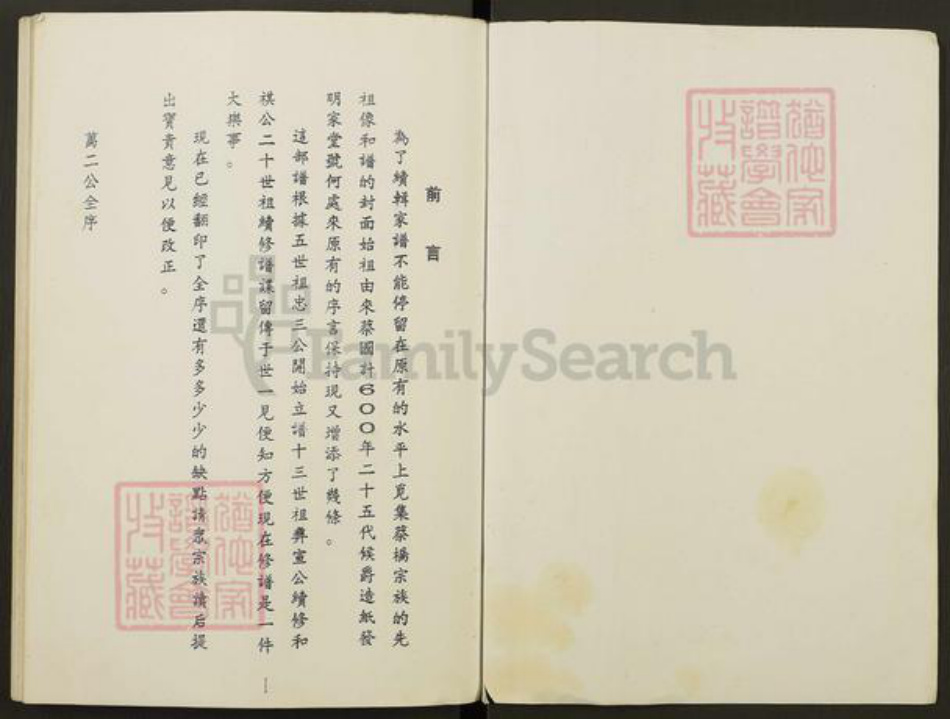 前言
為了續輯家譜不能停留在原有的水平上覓集蔡橋宗族的先
祖像和譜的封面始祖由來蔡國計600年二十五代候爵造紙發
明家堂號何處來原有的序言保持現又增添了幾條。
這部譜根據五世祖忠三公開始立譜十三世祖彝宣公續修和
祺公二十世祖續修譜諜留傳于世一見便知方便現在修譜是一件
大樂事。
現在已經翻印了全序還有多多少少的缺點請眾宗族讀后提
出寶貴意見以便改正。
萬二公全序
一
FamilySearch
家
譜學會
收藏
家
譜學會
收藏